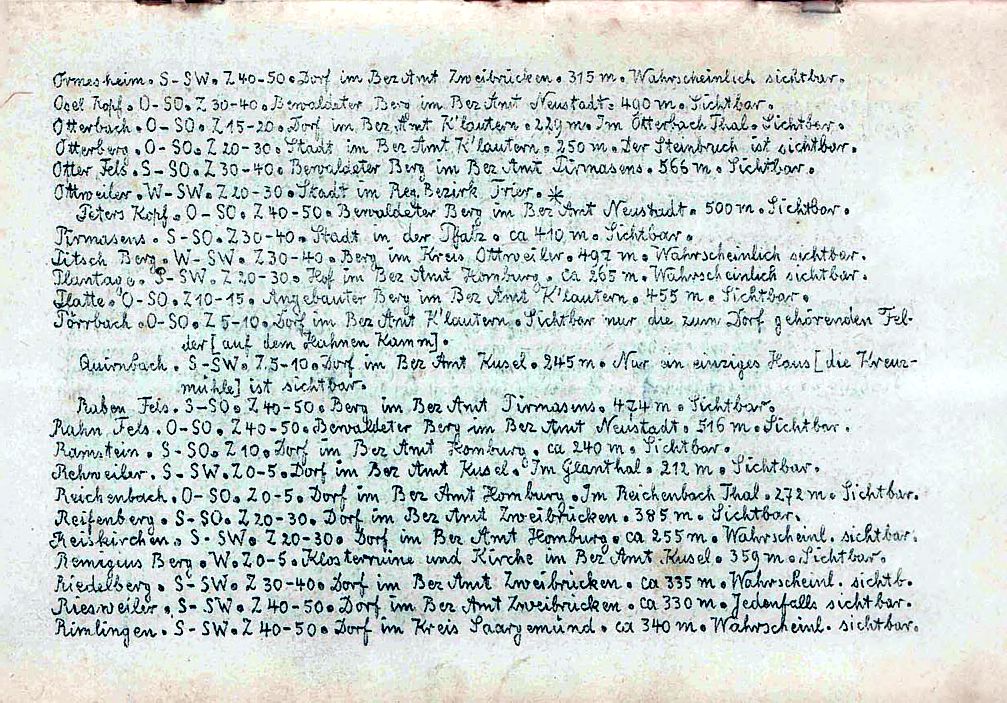 Ormesheim. S-SW. Z 40-50. Dorf im Bez Amt Zweibrücken. 315 m. Wahrscheinlich sichtbar.
Osel Kopf. O-SO. Z 30-40. Bewaldeter Berg im Bez Amt Neustadt. 490 m. Sichtbar.
Otterbach. O-SO. Z 15-20. Dorf im Bez Amt K'lautern. 229 m. Im Otterbach Thal. Sichtbar.
Otterberg. O-SO. Z 20-30. Stadt im Bez Amt K'lautern. 250 m. Der Steinbruch ist sichtbar.
Otter Fels. S-SO. Z 30-40. Bewaldeter Berg im Bez Amt Pirmasens. 566 m. Sichtbar.
Ottweiler. W-SW. Z 20-30. Stadt im Reg. Bezirk Trier. *
Peters Kopf. O-SO. Z 40-50. Bewaldeter Berg im Bez Amt Neustadt. 500 m. Sichtbar.
Pirmasens. S-SO. Z 30-40. Stadt in der Pfalz. ca 410 m. Sichtbar.
Pitsch Berg. W-SW. Z 30-40. Berg im Kreis Ottweiler. 492 m. Wahrscheinlich sichtbar.
Plantage. S-SW. Z 20-30. Hof im Bez Amt Homburg. ca 265 m. Wahrscheinlich sichtbar.
Platte. O-SO. Z 10-15. Angebauter Berg im Bez Amt K'lautern. 455 m. Sichtbar.
Pörrbach. O-SO. Z 5-10. Dorf im Bez Amt K'lautern. Sichtbar nur die zum Dorf gehörenden Fel-
der [auf dem Hahnen Kamm].
Quirnbach. S-SW. Z 5-10. Dorf im Bez Amt Kusel. 245 m. Nur ein einziges Haus [die Kreuz-
mühle] ist sichtbar.
Raben Fels. S-SO. Z 40-50. Berg im Bez Amt Pirmasens. 474 m. Sichtbar.
Rahn Fels. O-SO. Z 40-50. Bewaldeter Berg im Bez Amt Neustadt. 516 m. Sichtbar.
Ramstein. S-SO. Z 10. Dorf im Bez Amt Homburg. ca 240 m. Sichtbar.
Rehweiler. S-SW. Z 0-5. Dorf im Bez Amt Kusel. Im Glanthal. 212 m. Sichtbar.
Reichenbach. O-SO. Z 0-5. Dorf im Bez Amt Homburg. Im Reichenbach Thal. 272 m. Sichtbar.
Reifenberg. S-SO. Z 20-30. Dorf im Bez Amt Zweibrücken. 385 m. Sichtbar.
Reiskirchen. S-SW. Z 20-30. Dorf im Bez Amt Homburg. ca 255 m. Wahrscheinl. sichtbar.
Remigius Berg. W. Z 0-5. Klosterruine und Kirche im Bez Amt Kusel. 359 m. Sichtbar.
Riedelberg. S-SW. Z 30-40. Dorf im Bez Amt Zweibrücken. ca 335 m. Wahrscheinl. sichtb.
Riesweiler. S-SW. Z 40-50. Dorf im Bez Amt Zweibrücken. ca 330 m. Jedenfalls sichtbar.
Rimlingen. S-SW. Z 40-50. Dorf im Kreis Saargemünd. ca 340 m. Wahrscheinl. sichtbar.